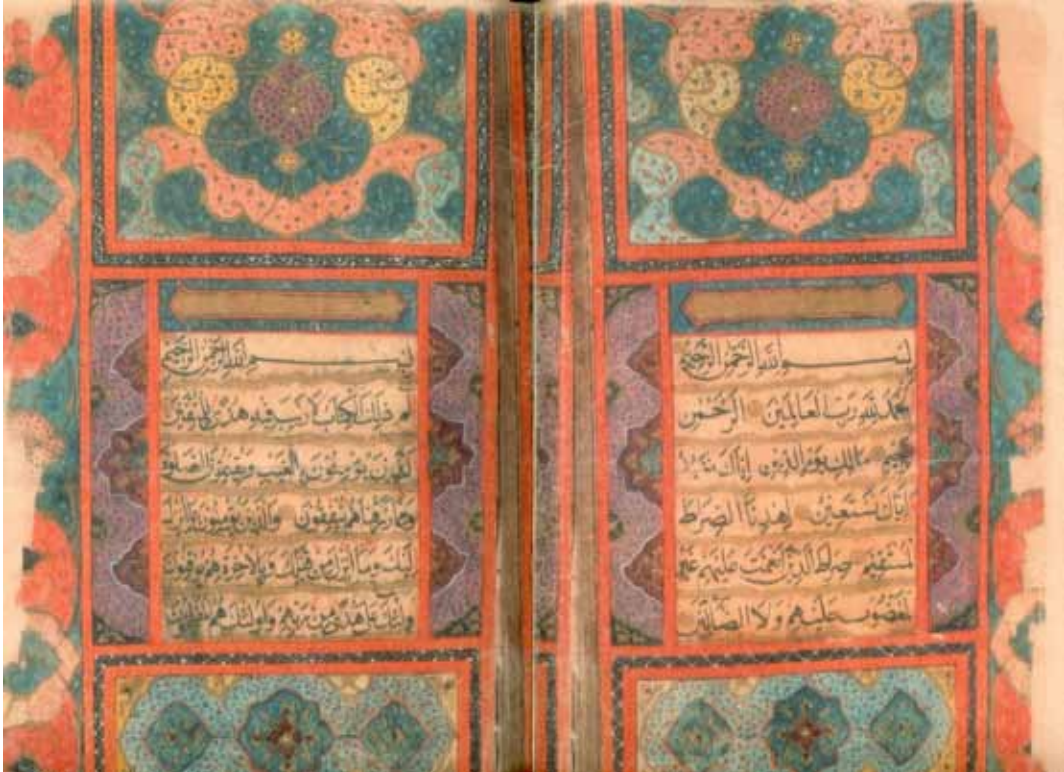 بسم الله الرحمن الرحيم
الحمد لله رب العالمين الرحمن
الرحيم مالك يوم الدين إياك نعبد و
إياك نستعين اهدنا الصراط
المستقيم صراط الذين أنعمت عليهم غير
المغضوب عليهم ولا الضالين
بسم الله الرحمن الرحيم
الم ذلك الكتاب لا ريب فيه هدى للمتقين
الذين يؤمنون بالغيب ويقيمون الصلوة
ومما رزقناهم ينفقون والذين يؤمنون بما أنزل
إليك وما أنزل من قبلك وبالآخرة هم يوقنون
أولئك على هدى من ربهم وأولئك هم المفلحون